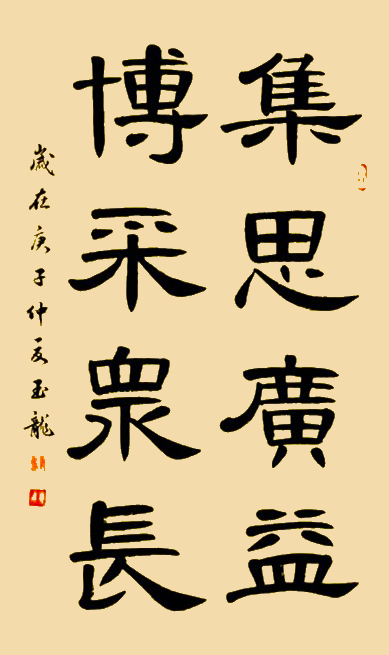 集思廣益
博采眾長
歲在庚子仲夏玉龍